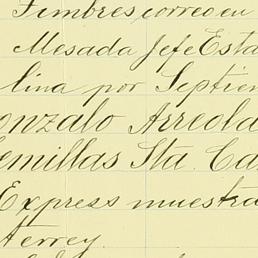 Timbres correo en
Mesada Jefe Esta
lina por Septiem
onzalo Arreola
emillas Sta. Ca
Express muestra
terrey.